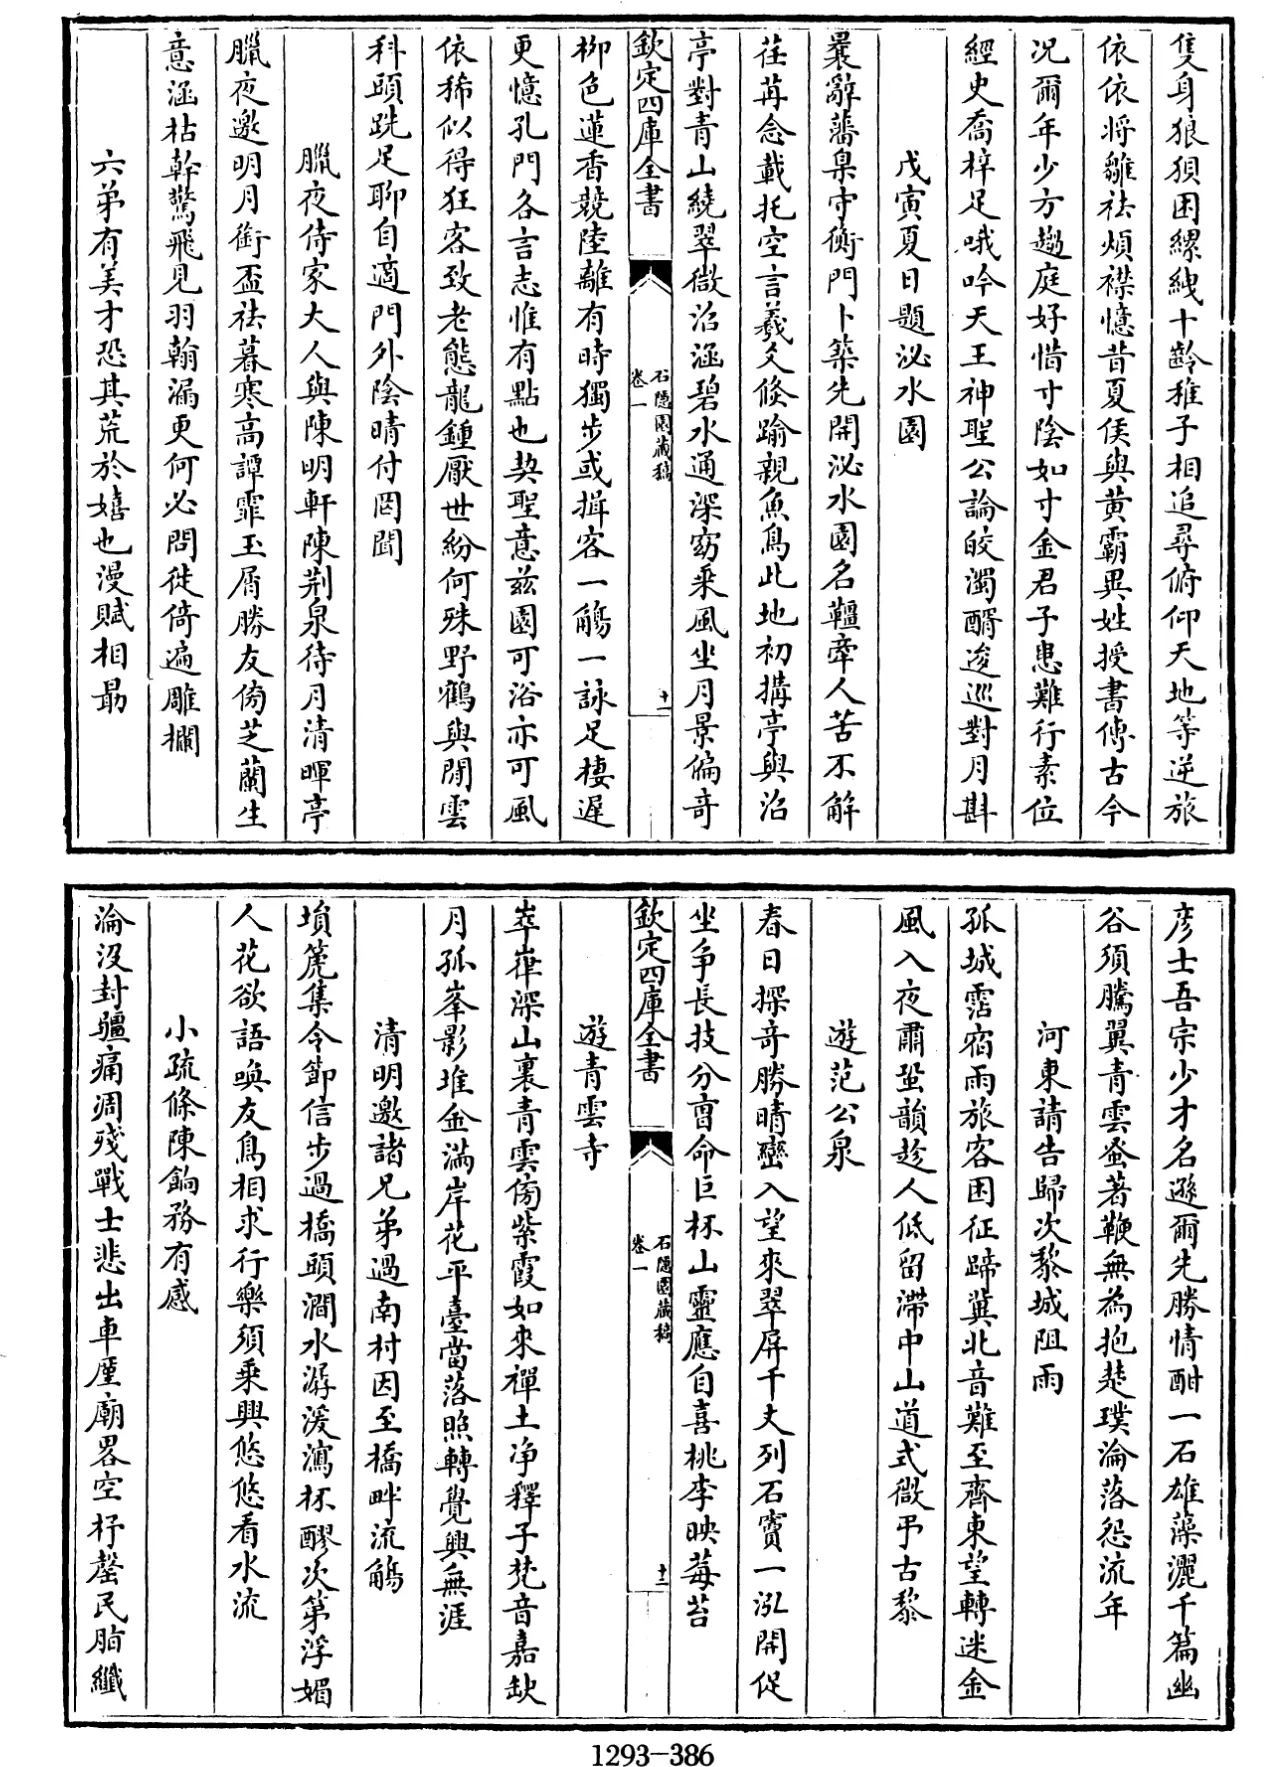 隻身狼狽困縲絏十齡稚子相追尋俯仰天地等逆旅
依依将雛袪煩襟憶昔夏侯與黄霸異姓授書傳古今
况爾年少方趨庭好惜寸陰如寸金君子患難行素位
經史喬梓足哦吟天王神聖公論皎濁醑逡巡對月斟
戊寅夏日題泌水園
曩辭藩臬守衡門卜築先開泌水園名韁牽人苦不解
荏苒念載托空言羲爻倐踰親魚鳥此地初搆亭與沼
亭對青山繞翠微沼涵碧水通深窈乘風坐月景偏奇
欽定四庫全書
石隠園藏稿
卷一
十一
柳色蓮香競陸離有時獨步或揖客一觴一詠足棲遲
更憶孔門各言志惟有點也契聖意兹園可浴亦可風
依稀似得狂客致老態龍鍾厭世紛何殊野鶴與閒雲
科頭跣足聊自適門外陰晴付罔聞
臘夜侍家大人與陳明軒陳荆泉待月清暉亭
臘夜邀明月銜盃袪暮寒高譚霏玉屑勝友傍芝蘭生
意涵枯幹驚飛見羽翰漏更何必問徙倚遍雕欄
六弟有美才恐其荒於嬉也漫賦相勗
彦士吾宗少才名遜爾先勝情酣一石雄藻灑千篇幽
谷須騰翼青雲蚤著鞭無為抱楚璞淪落怨流年
河東請告歸次黎城阻雨
孤城霑宿雨旅客困征蹄冀北音難至齊東望轉迷金
風入夜肅蛩韻趁人低留滯中山道式微弔古黎
遊范公泉
春日探奇勝晴巒入望來翠屏千丈列石竇一泓開促
坐争長技分曹命巨杯山靈應自喜桃李映莓苔
欽定四庫全書
石隠園藏稿
卷一
十二
遊青雲寺
崒嵂深山裏青雲傍紫霞如來禪土净釋子梵音嘉缺
月孤峯影堆金滿岸花平臺當落照轉覺興無涯
清明邀諸兄弟過南村因至橋畔流觴
塤箎集令節信步過橋頭澗水潺湲瀉杯醪次第浮媚
人花欲語喚友鳥相求行樂須乘興悠悠看水流
小疏條陳餉務有感
淪没封疆痛凋殘戰士悲出車厪廟畧空杼罄民脂纖
1293-386